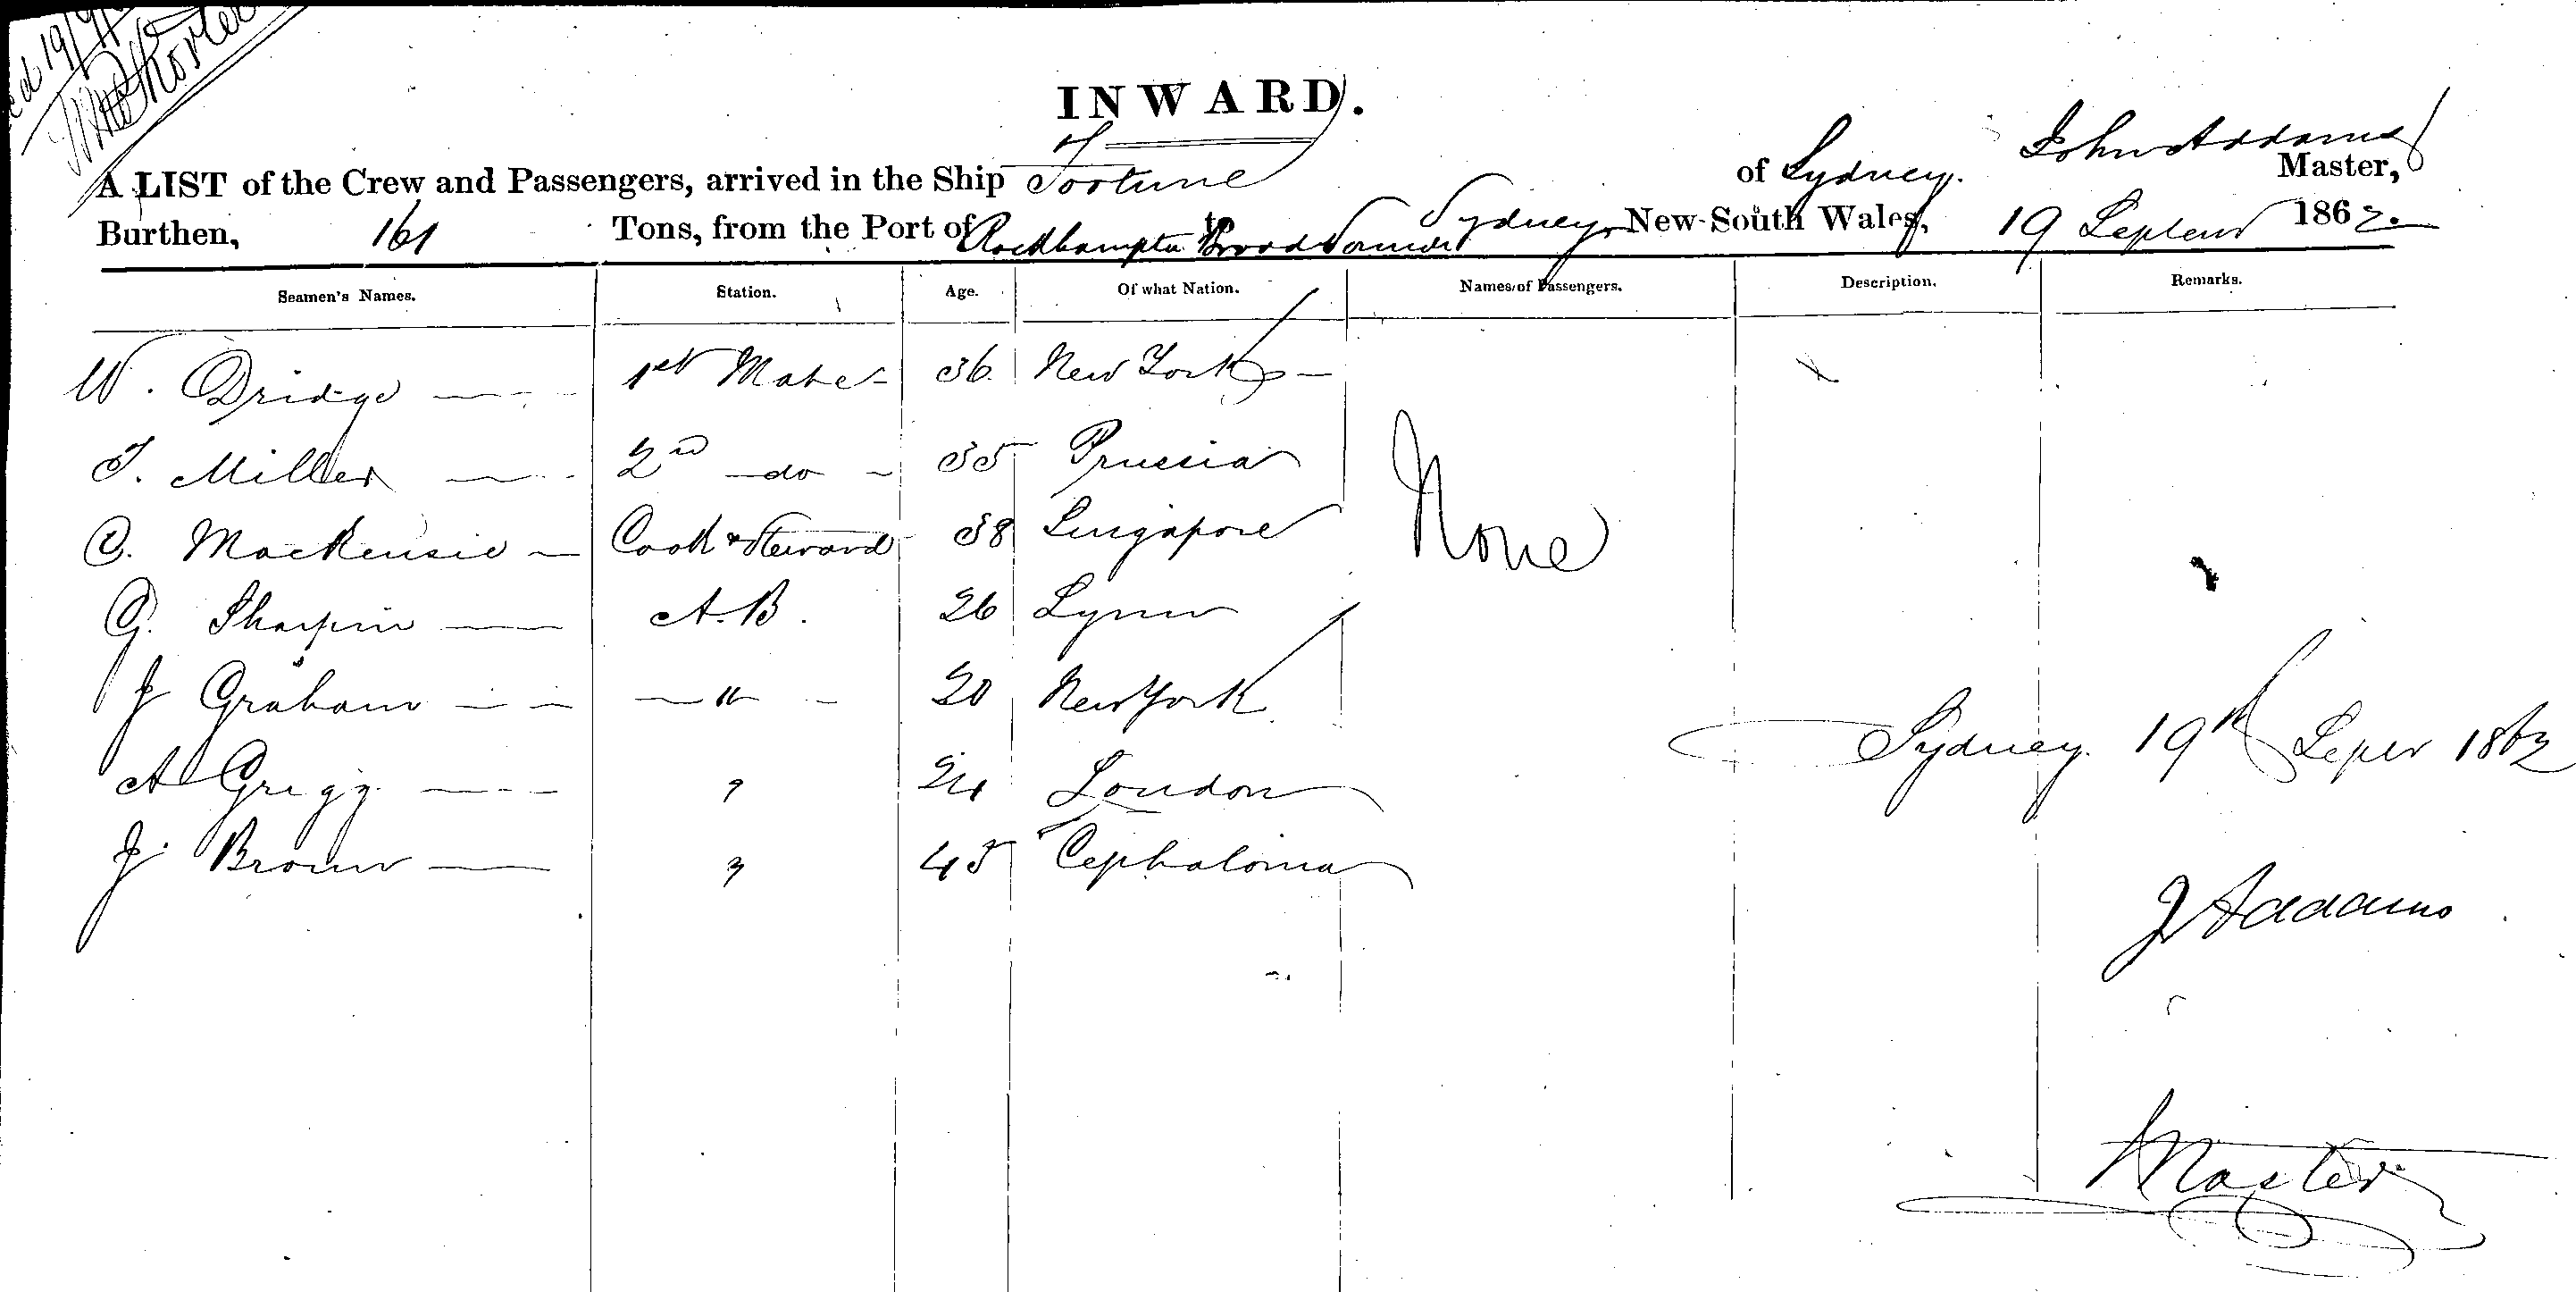 INWARD.
A LIST of the Crew and Passengers, arrived in the Ship Fortune of Sydney. John Addams Master,
Burthen, 161 Tons, from the Port of Rockhampton to Sydney New-South Wales, 19 Septemr 1862.
Seamen's Names. Station. Age. Of what Nation. Names of Passengers. Description. Remarks.
W. Dridge 1st Mate 36 New York
T. Miller 2nd do 35 Prussia
C. MacKensie Cook & Steward 38 Singapore
None
G. Sharpin A.B. 26 Lynn
J Graham " 20 New York
Sydney 19th Sepr 1862
A Grigg " 24 London
J. Brown " 45 Cephalonia
J Addams
Master